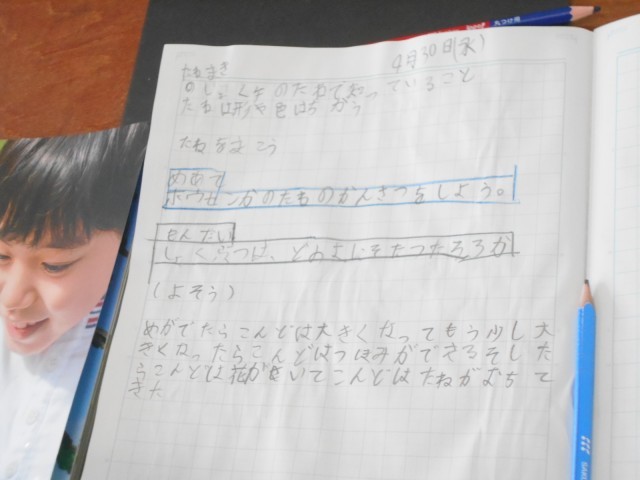 4月30日(水)
たねまき
○しょくぶつのたねで知っていること
たねは形や色はちがう
たねをまこう
めあて
ホウセンカのたねのかんさつをしよう。
もんだい
しょく物は、どのようにそだつだろうか
(よそう)
めがでたらこんどは大きくなってもう少し大
きくなったらこんどはつぼみができるそした
らこんどは花がさいてこんどはたねがおちて
きた